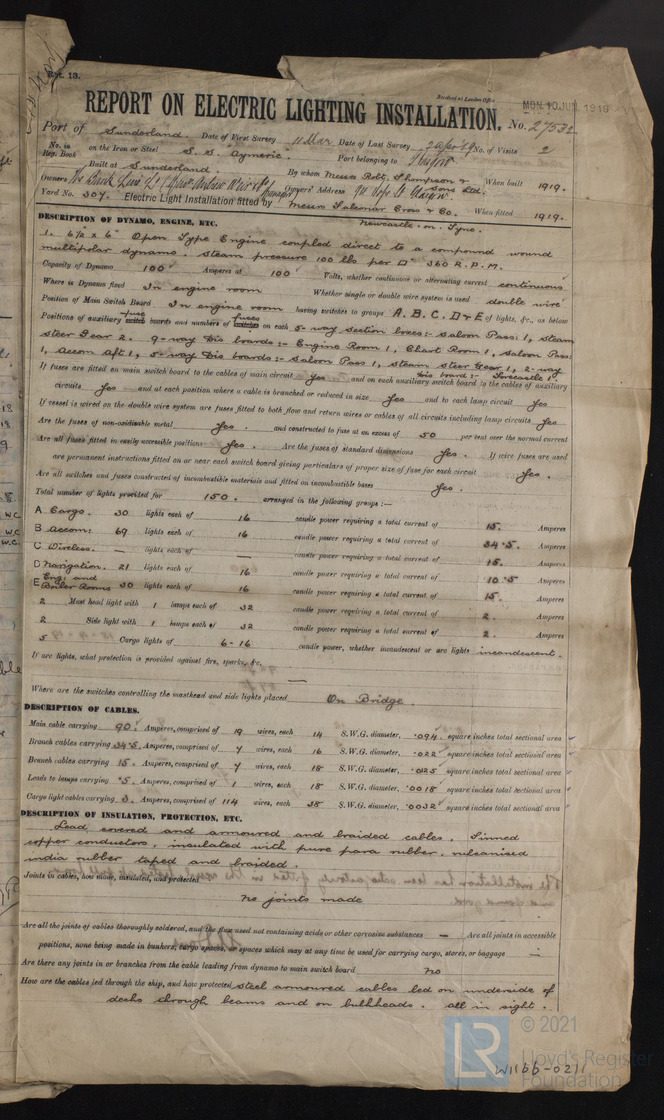 Rpt. 13.
Received at London Office
MON. 10 JUN. 1919
REPORT ON ELECTRIC LIGHTING INSTALLATION. No. 27532
Port of Sunderland. Date of First Survey 11 Mar Date of Last Survey No. of Visits 2
No. in Reg. Book on the Iron or Steel S.S. "Aymeric" Port belonging to Glasgow
Built at Sunderland By whom Messrs Robt. Thompson & Sons Ltd. When built 1919.
Owners The Bank Line Ld (Andrew Weir & Co Managers) Owners' Address Glasgow
Yard No. 307. Electric Light Installation fitted by Messrs Falconar Cross & Co. When fitted 1919.
Newcastle-on-Tyne.
DESCRIPTION OF DYNAMO, ENGINE, ETC.
1. 6½" x 6" Open Type Engine coupled direct to a compound wound
multipolar dynamo. Steam pressure 100 lbs per □" 360 R.P.M.
Capacity of Dynamo 100 Amperes at 100 Volts, whether continuous or alternating current continuous
Where is Dynamo fixed In engine room Whether single or double wire system is used double wire
Position of Main Switch Board In engine room having switches to groups A. B. C. D & E of lights, &c., as below
Positions of auxiliary fuse boards and numbers of fuses on each 5-way section boxes:- Saloon Pass: 1, Steam
steer Gear 2. 9-way Dis boards:- Engine Room 1, Chart Room 1, Saloon Pass:
1, Accom aft 1, 5-way Dis boards:- Saloon Pass 1, steam steer Gear 1, 2-way
Dis board:- Forecastle 1.
If fuses are fitted on main switch board to the cables of main circuit Yes and on each auxiliary switch board to the cables of auxiliary
circuits Yes and at each position where a cable is branched or reduced in size Yes and to each lamp circuit Yes
If vessel is wired on the double wire system are fuses fitted to both flow and return wires or cables of all circuits including lamp circuits Yes
Are the fuses of non-oxidizable metal Yes. and constructed to fuse at an excess of 50 per cent over the normal current
Are all fuses fitted in easily accessible positions Yes. Are the fuses of standard dimensions Yes. If wire fuses are used
are permanent instructions fitted on or near each switch board giving particulars of proper size of fuse for each circuit Yes.
Are all switches and fuses constructed of incombustible materials and fitted on incombustible bases Yes.
Total number of lights provided for 150. arranged in the following groups :—
A Cargo. 30 lights each of 16 candle power requiring a total current of 15. Amperes
B Accom: 69 lights each of 16 candle power requiring a total current of 34.5. Amperes
C Wireless. — lights each of — candle power requiring a total current of 15. Amperes
D Navigation. 21 lights each of 16 candle power requiring a total current of 10.5 Amperes
E Eng: and Boiler Rooms 30 lights each of 16 candle power requiring a total current of 15. Amperes
2 Mast head light with 1 lamps each of 32 candle power requiring a total current of 2. Amperes
2 Side light with 1 lamps each of 32 candle power requiring a total current of 2. Amperes
5 Cargo lights of 6-16 candle power, whether incandescent or arc lights incandescent.
If arc lights, what protection is provided against fire, sparks, &c. —
Where are the switches controlling the masthead and side lights placed On Bridge.
DESCRIPTION OF CABLES.
Main cable carrying 90. Amperes, comprised of 19 wires, each 14 S.W.G. diameter, .094 square inches total sectional area
Branch cables carrying 34.5. Amperes, comprised of 7 wires, each 16 S.W.G. diameter, .022 square inches total sectional area
Branch cables carrying 15. Amperes, comprised of 7 wires, each 18 S.W.G. diameter, .0125 square inches total sectional area
Leads to lamps carrying .5. Amperes, comprised of 1 wires, each 18 S.W.G. diameter, .0018 square inches total sectional area
Cargo light cables carrying 3. Amperes, comprised of 114 wires, each 38 S.W.G. diameter, .0032 square inches total sectional area
DESCRIPTION OF INSULATION, PROTECTION, ETC.
Lead covered and armoured and braided cables. Tinned
copper conductors, insulated with pure para rubber, vulcanised
india rubber taped and braided.
Joints in cables, how made, insulated, and protected
no joints made
Are all the joints of cables thoroughly soldered, and the flux used not containing acids or other corrosive substances — Are all joints in accessible
positions, none being made in bunkers, cargo spaces, or spaces which may at any time be used for carrying cargo, stores, or baggage —
Are there any joints in or branches from the cable leading from dynamo to main switch board no
How are the cables led through the ship, and how protected steel armoured cables led on underside of
decks through beams and on bulkheads. all in sight.
© 2021
LR Lloyd's Register
Foundation
W1166-0211